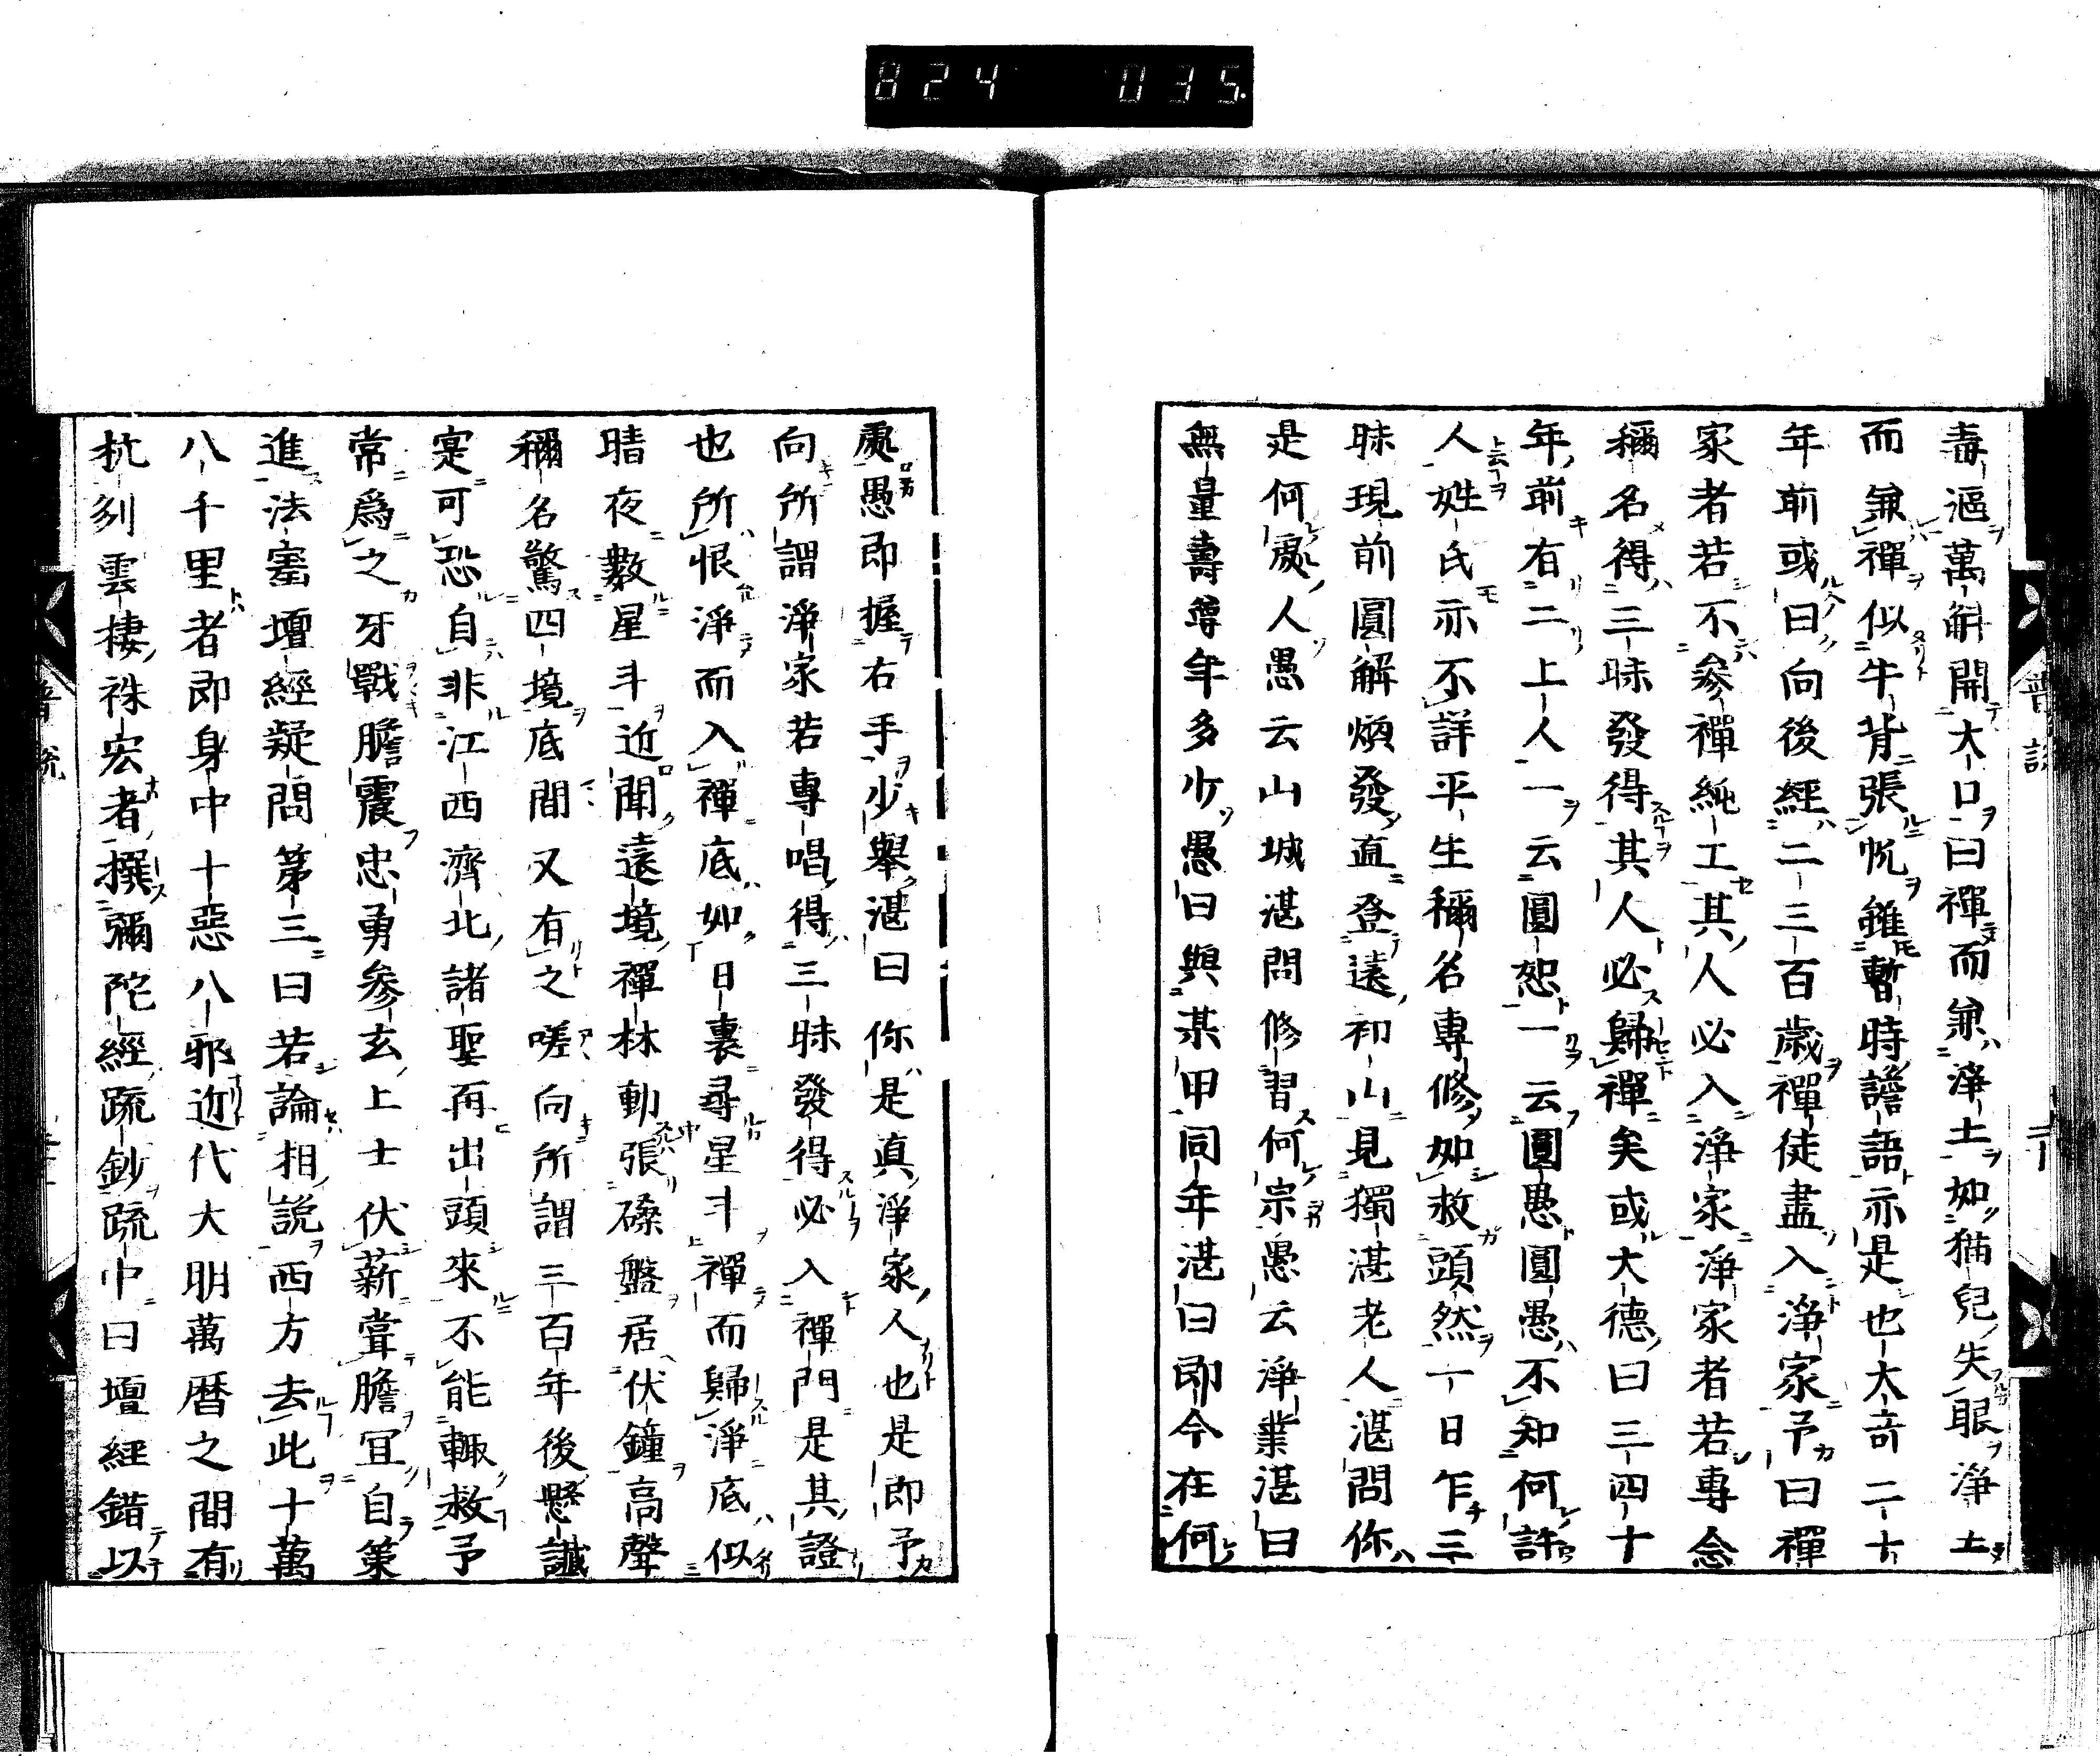 824 035
毒漚萬斛開大口曰禪而兼淨土如猫兒失眼淨土
而兼禪似牛背張㠶雖暫時譫語亦是也大奇二十
年前或曰向後經二三百歳禪徒盡入淨家予曰禪
家者若不參禪純工其人必入淨家淨家者若專念
稱名得三昧發得其人必歸禪矣或大德曰三四十
年前有二上人一云圓恕一云圓愚圓愚不知何許
人姓氏亦不詳平生稱名專修如救頭然一日乍三
昧現前圓解煥發直登遠初山見獨湛老人湛問你
是何處人愚云山城湛問修習何宗愚云淨業湛曰
無量壽尊年多少愚曰與某甲同年湛曰即今在何
處愚即握右手少舉湛曰你是真淨家人也是即予
向所謂淨家若專唱得三昧發得必入禪門是其證
也所恨淨而入禪底如日裏尋星斗禪而歸淨底似
晴夜數星斗近聞遠境禪林動張磉盤居伏鐘高聲
稱名驚四境底間又有之嗟向所謂三百年後懸讖
寔可恐自非江西濟北諸聖再出頭來不能輙救予
常爲之牙戰膽震忠勇參玄上士伏薪嘗膽冝自策
進法寳壇經疑問第三曰若論相説西方去此十萬
八千里者即身中十惡八邪近代大明萬暦之間有
杭州雲棲袾宏者撰彌陀經疏鈔疏中曰壇經錯以